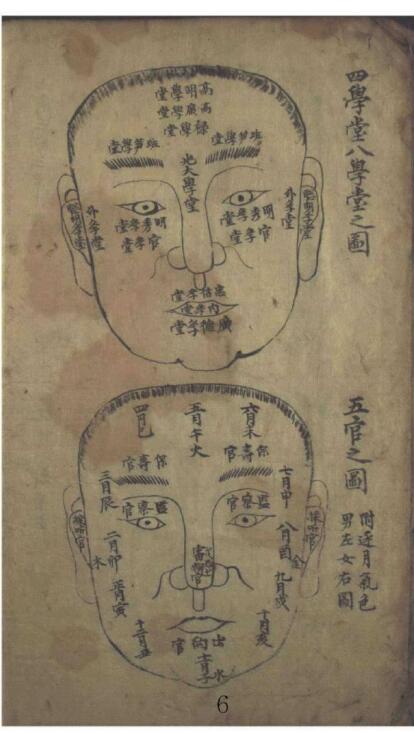 四學堂八學堂之圖
高明學堂
高廣學堂
祿學堂
班笋學堂
班笋學堂
大學堂
明秀斈堂
官斈堂
明秀斈堂
官斈堂
外斈堂
外斈堂
聰明斈堂
聰明斈堂
忠信斈堂
內斈堂
廣德斈堂
五官之圖
附逐月氣色
男左女右圖
六月未
五月午火
四月巳
保壽官
保壽官
七月申
三月辰
監察官
監察官
採听官
採听官
八月酉
二月卯
金
木
審辨官
九月戌
正月寅
十月亥
十二月丑
出納官
十一月子水
6